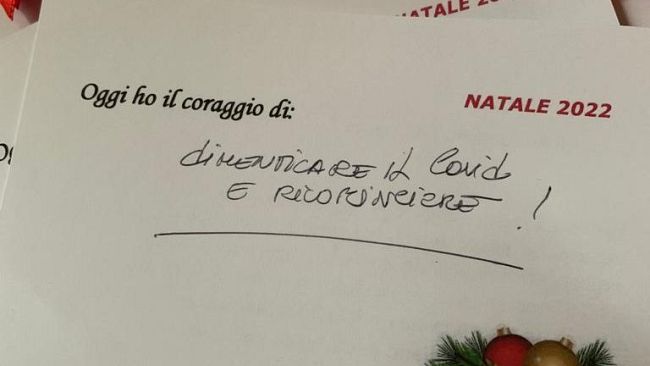 NATALE 20
Oggi ho il coraggio di:
NATALE 2022
DIMENTICARE IL Covid
E RICOMINCIARE !